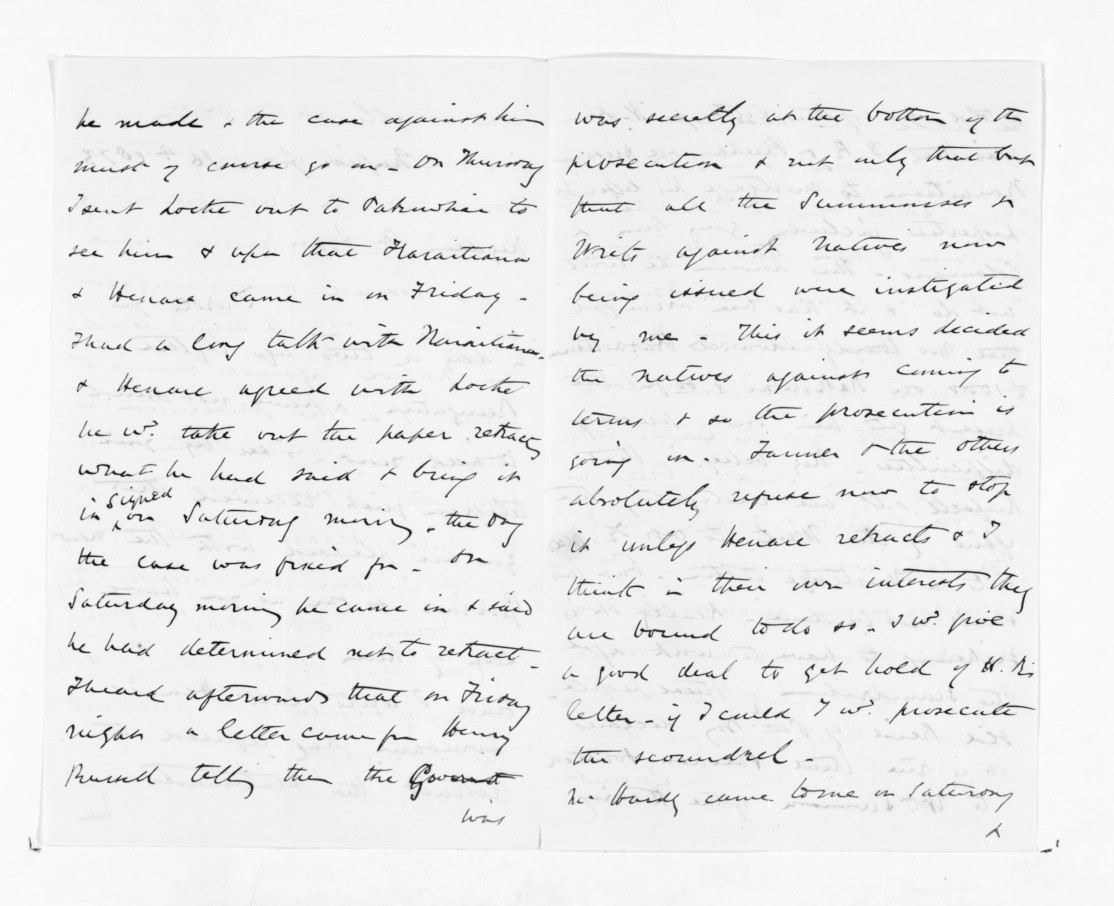 he made & the case against him
must of course go on - On Thursday
I sent Locke out to Pakowhai to
see him & upon that Karaitiana
& Henare came in on Friday -
I had a long talk with Karaitiana -
& Henare agreed with Locke
he wd. take out the paper retracting
what he had said & bring it
in signed on Saturday morning - the day
the case was fixed for - On
Saturday morning he came in & said
he had determined not to retract -
I heard afterwards that on Friday
night a letter came from Henry
Russell telling them the Governmt
was
was secretly at the bottom of the
prosecution & not only that but
that all the Summonses &
Writs against Natives now
being issued were instigated
by me - This it seems decided
the Natives against coming to
terms & so the prosecution is
going on - Tanner & the others
absolutely refuse now to stop
it unless Henare retracts & I
think in their own interests they
are bound to do so - I wd. give
a good deal to get hold of H. R's
letter - if I could I wd. prosecute
the scoundrel -
came to me on Saturday
&